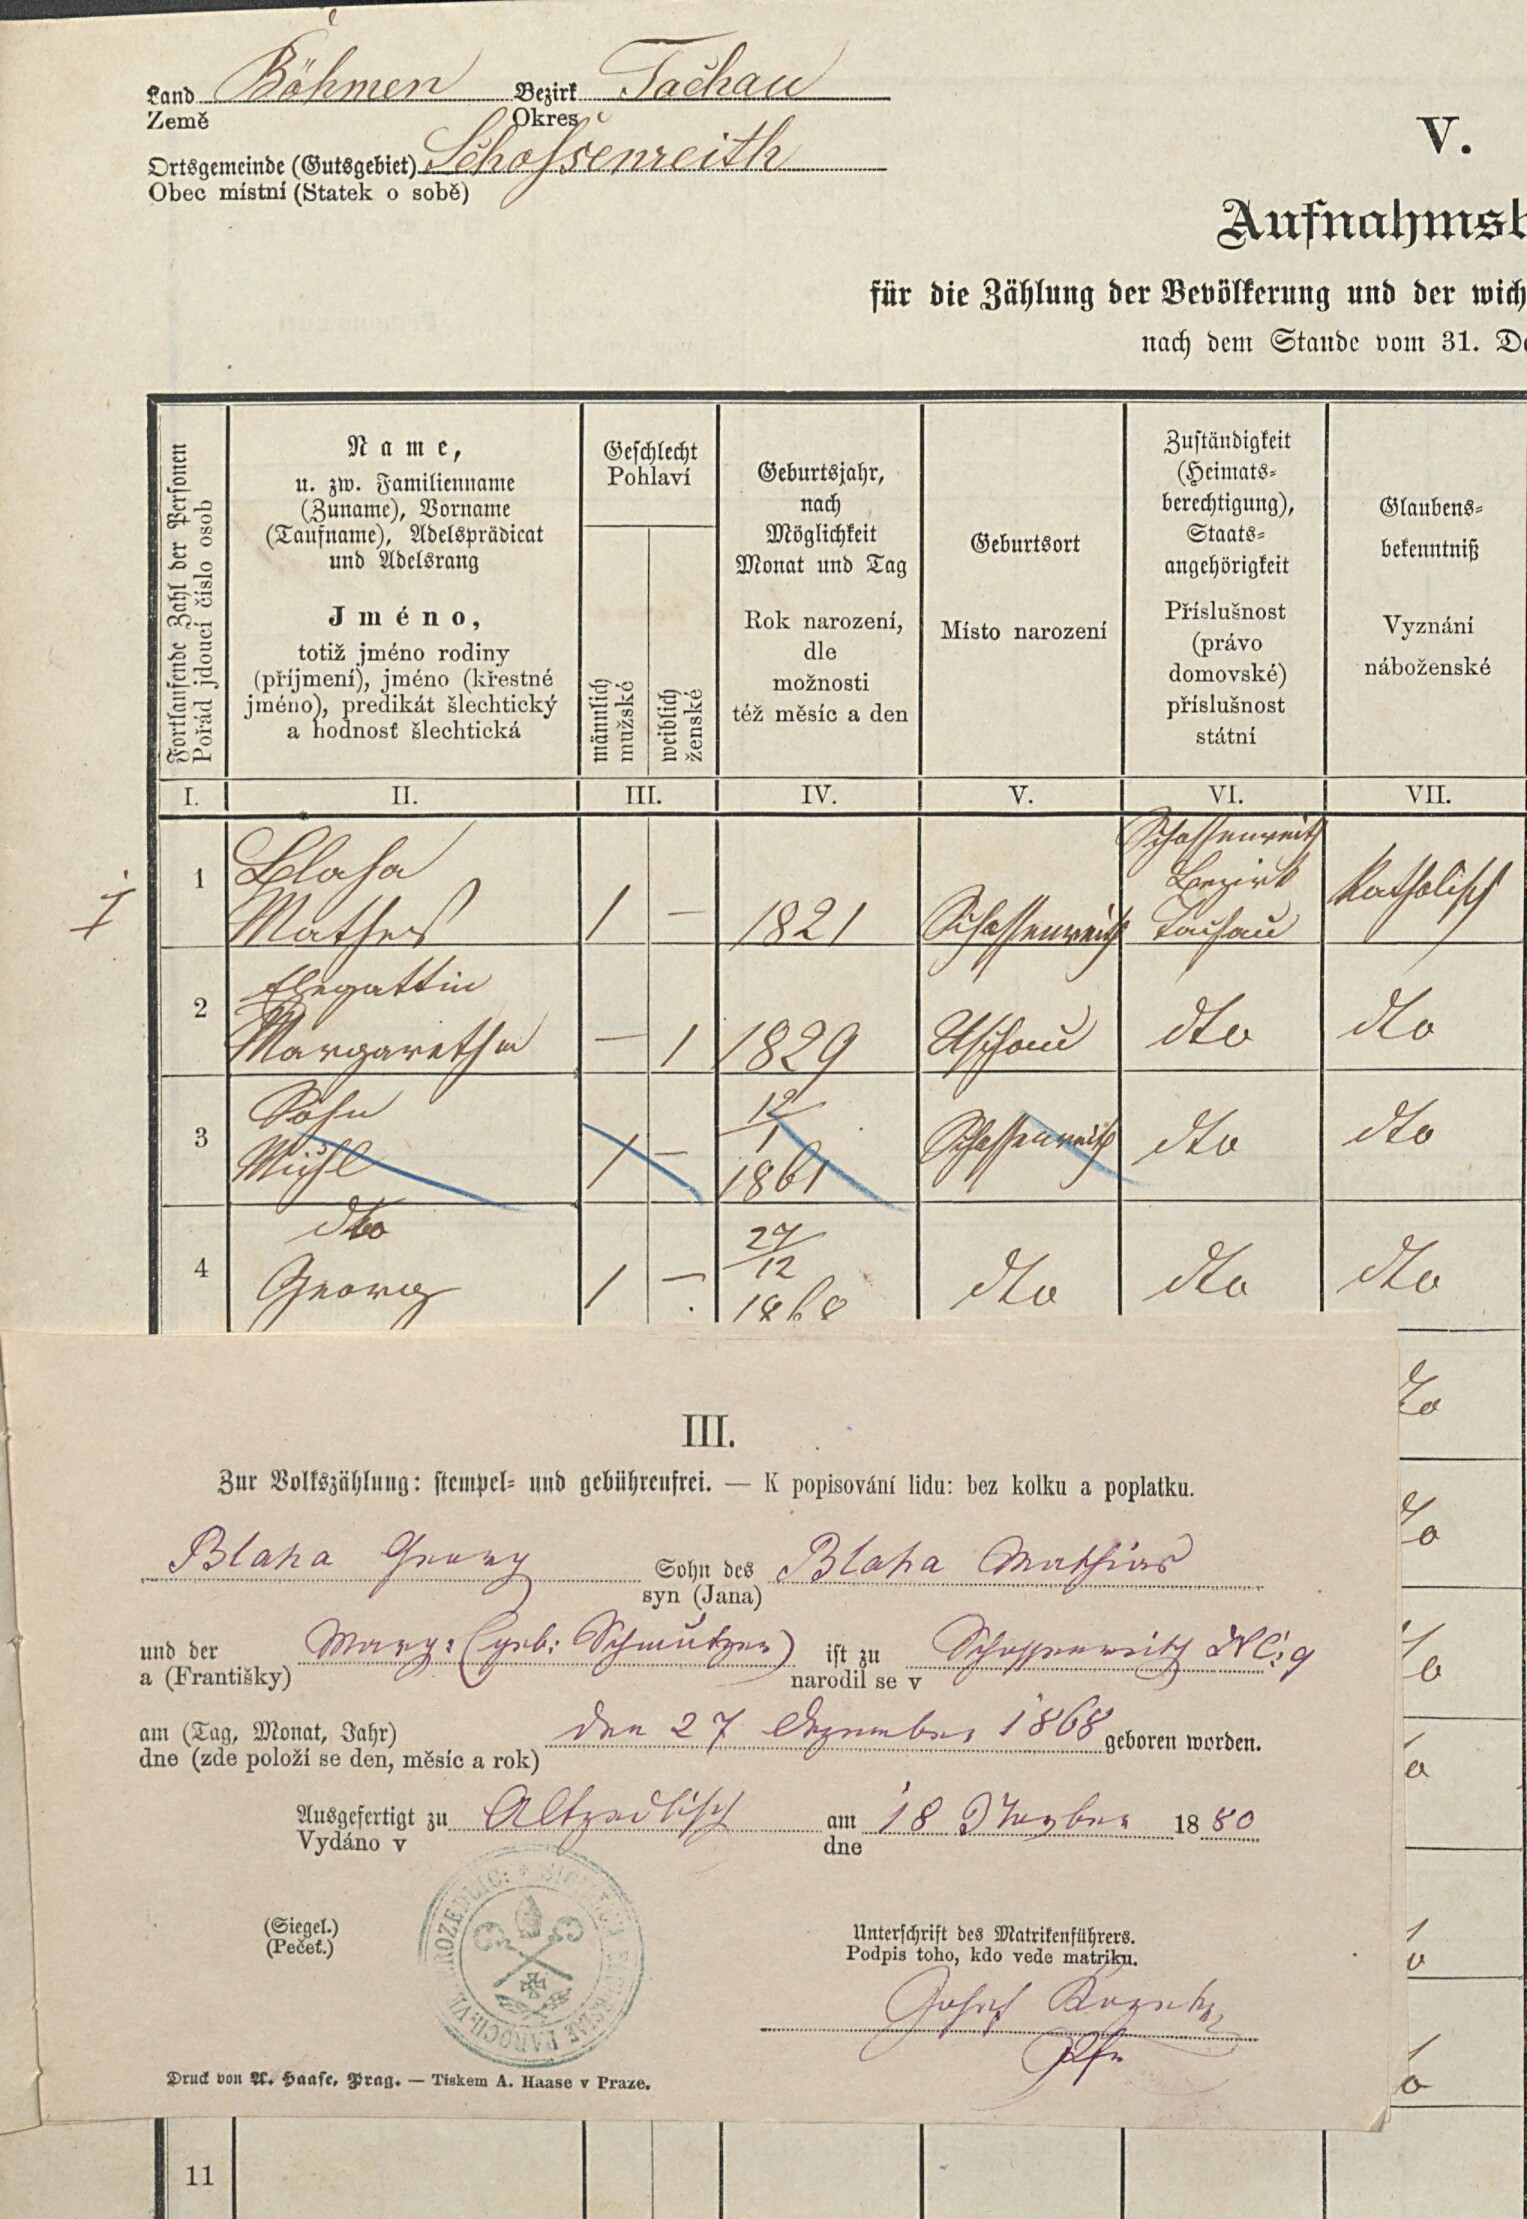 Land Böhmen Bezirk Tachau
Země Okres
Ortsgemeinde (Gutsgebiet) Schossenreith
Obec místní (Statek o sobě)
V.
Aufnahmsb
für die Zählung der Bevölkerung und der wich
nach dem Stande vom 31. De
Fortlaufende Zahl der Personen
Pořád jdoucí číslo osob
Name,
u. zw. Familienname
(Zuname), Vorname
(Taufname), Adelsprädicat
und Adelsrang
Jméno,
totiž jméno rodiny
(příjmení), jméno (křestné
jméno), predikát šlechtický
a hodnosť šlechtická
Geschlecht
Pohlaví
männlich
mužské
weiblich
ženské
Geburtsjahr,
nach
Möglichkeit
Monat und Tag
Rok narození,
dle
možnosti
též měsíc a den
Geburtsort
Místo narození
Zuständigkeit
(Heimats-
berechtigung),
Staats-
angehörigkeit
Příslušnost
(právo
domovské)
příslušnost
státní
Glaubens-
bekenntniß
Vyznání
náboženské
I. II. III. IV. V. VI. VII.
1 Blaha
Mathes 1 — 1821 Schossenreith Schossenreith
Bezirk
Tachau Katholisch
2 Ehegattin
Margaretha — 1 1829 Uschau dto dto
3 Sohn
Michl 1 — 12/1
1861 Schossenreith dto dto
4 dto
Georg 1 — 27/12
1868 dto dto dto
III.
Zur Volkszählung: stempel- und gebührenfrei. — K popisování lidu: bez kolku a poplatku.
Blaha Georg Sohn des Blaha Mathias
syn (Jana)
und der Marg: (geb: Schmutzer) ist zu Schossenreith NC: 9
a (Františky) narodil se v
am (Tag, Monat, Jahr) den 27 Dezember 1868 geboren worden.
dne (zde položí se den, měsíc a rok)
Ausgefertigt zu Altzedlisch am 18 Dezember 1880
Vydáno v dne
(Siegel.)
(Pečeť.)
Unterschrift des Matrikenführers.
Podpis toho, kdo vede matriku.
Josef
Pfr
Druck von A. Haase, Prag. — Tiskem A. Haase v Praze.
11